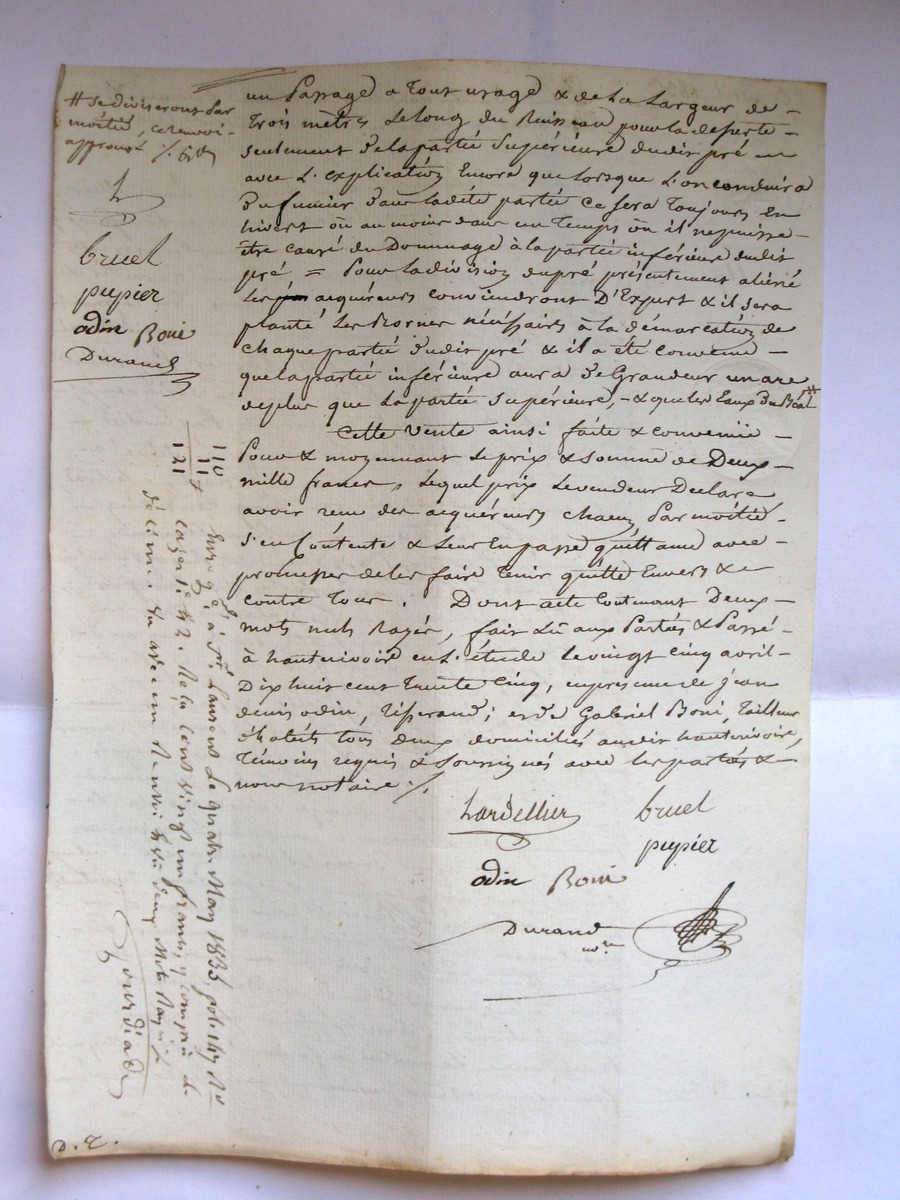 # se diviseront par
moitié, ce renvoi
approuvé ./.
bruel
pupier
odin Boni
Durand
un Passage a tout usage & de la Largeur de
trois mètres Le long du Ruisseau pour la deserte
seulement de la partie Supérieure dudit pré
avec L'explication Encore que lorsque L'on conduira
du fumier dans ladite partie ce sera toujours En
hivert ou au moins dans un Temps où il ne puisse
être causé du Dommage à la partie inférieure dudit
pré = Pour la division du pré présentement aliéné
Les acquéreurs conviendront D'Expert & il sera
planté Les Bornes nécéssaires à la démarcation de
chaque partie dudit pré & il a été convenu
que la partie inférieure aura de Grandeur un are
de plus que La partie supérieure, & que les Eaux du Béal #
Cette vente ainsi faite & convenüe
Pour & moyennant Le prix & somme de Deux
mille francs, Lequel prix Le vendeur Declare
avoir reçu des acquéreurs chacun Par moitié
s'en Contente & Leur En passe quittance avec
promesse de les faire tenir quitte Envers &
contre Tous. Dont acte Contenant Deux
mots nuls Rayés, fait Lu aux Parties & Passé
à hauterivoire en L'étude le vingt cinq avril
Dix huit cent trente Cinq, en présence de jean
denis odin, Tisserand; et de Gabriel Boni, Tailleur
d'habits tous Deux domiciliés audit hauterivoire,
Témoins requis & soussignés avec les parties &
nous notaire ./.
Lardellier bruel
pupier
odin Boni
Durand
nore
110
11
121
Enregé à St Laurent Le quatre May 1835, fol. 147 Ro
cases 1 & 2. Reçu cent vingt un francs, y compris le
décime. Vu avec un Renvoi & deux Mots Rayés
D. R.